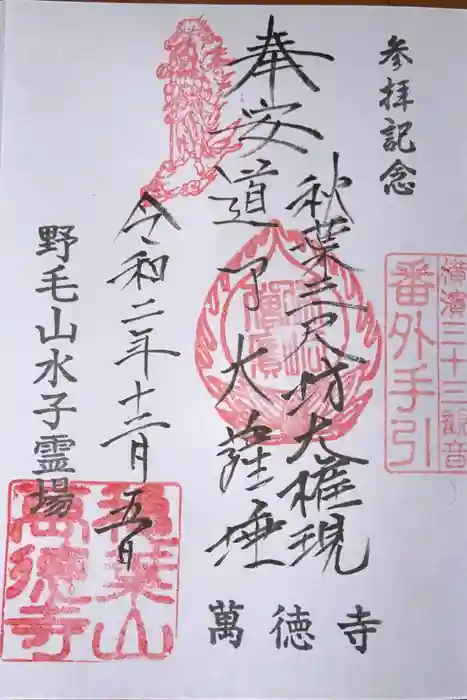 参拝記念
横濱三十三観音
番外手引
奉安
秋葉三尺坊大権現
道了大薩埵
令和二年十二月五日
野毛山水子霊場
萬徳寺
葉山
萬徳寺